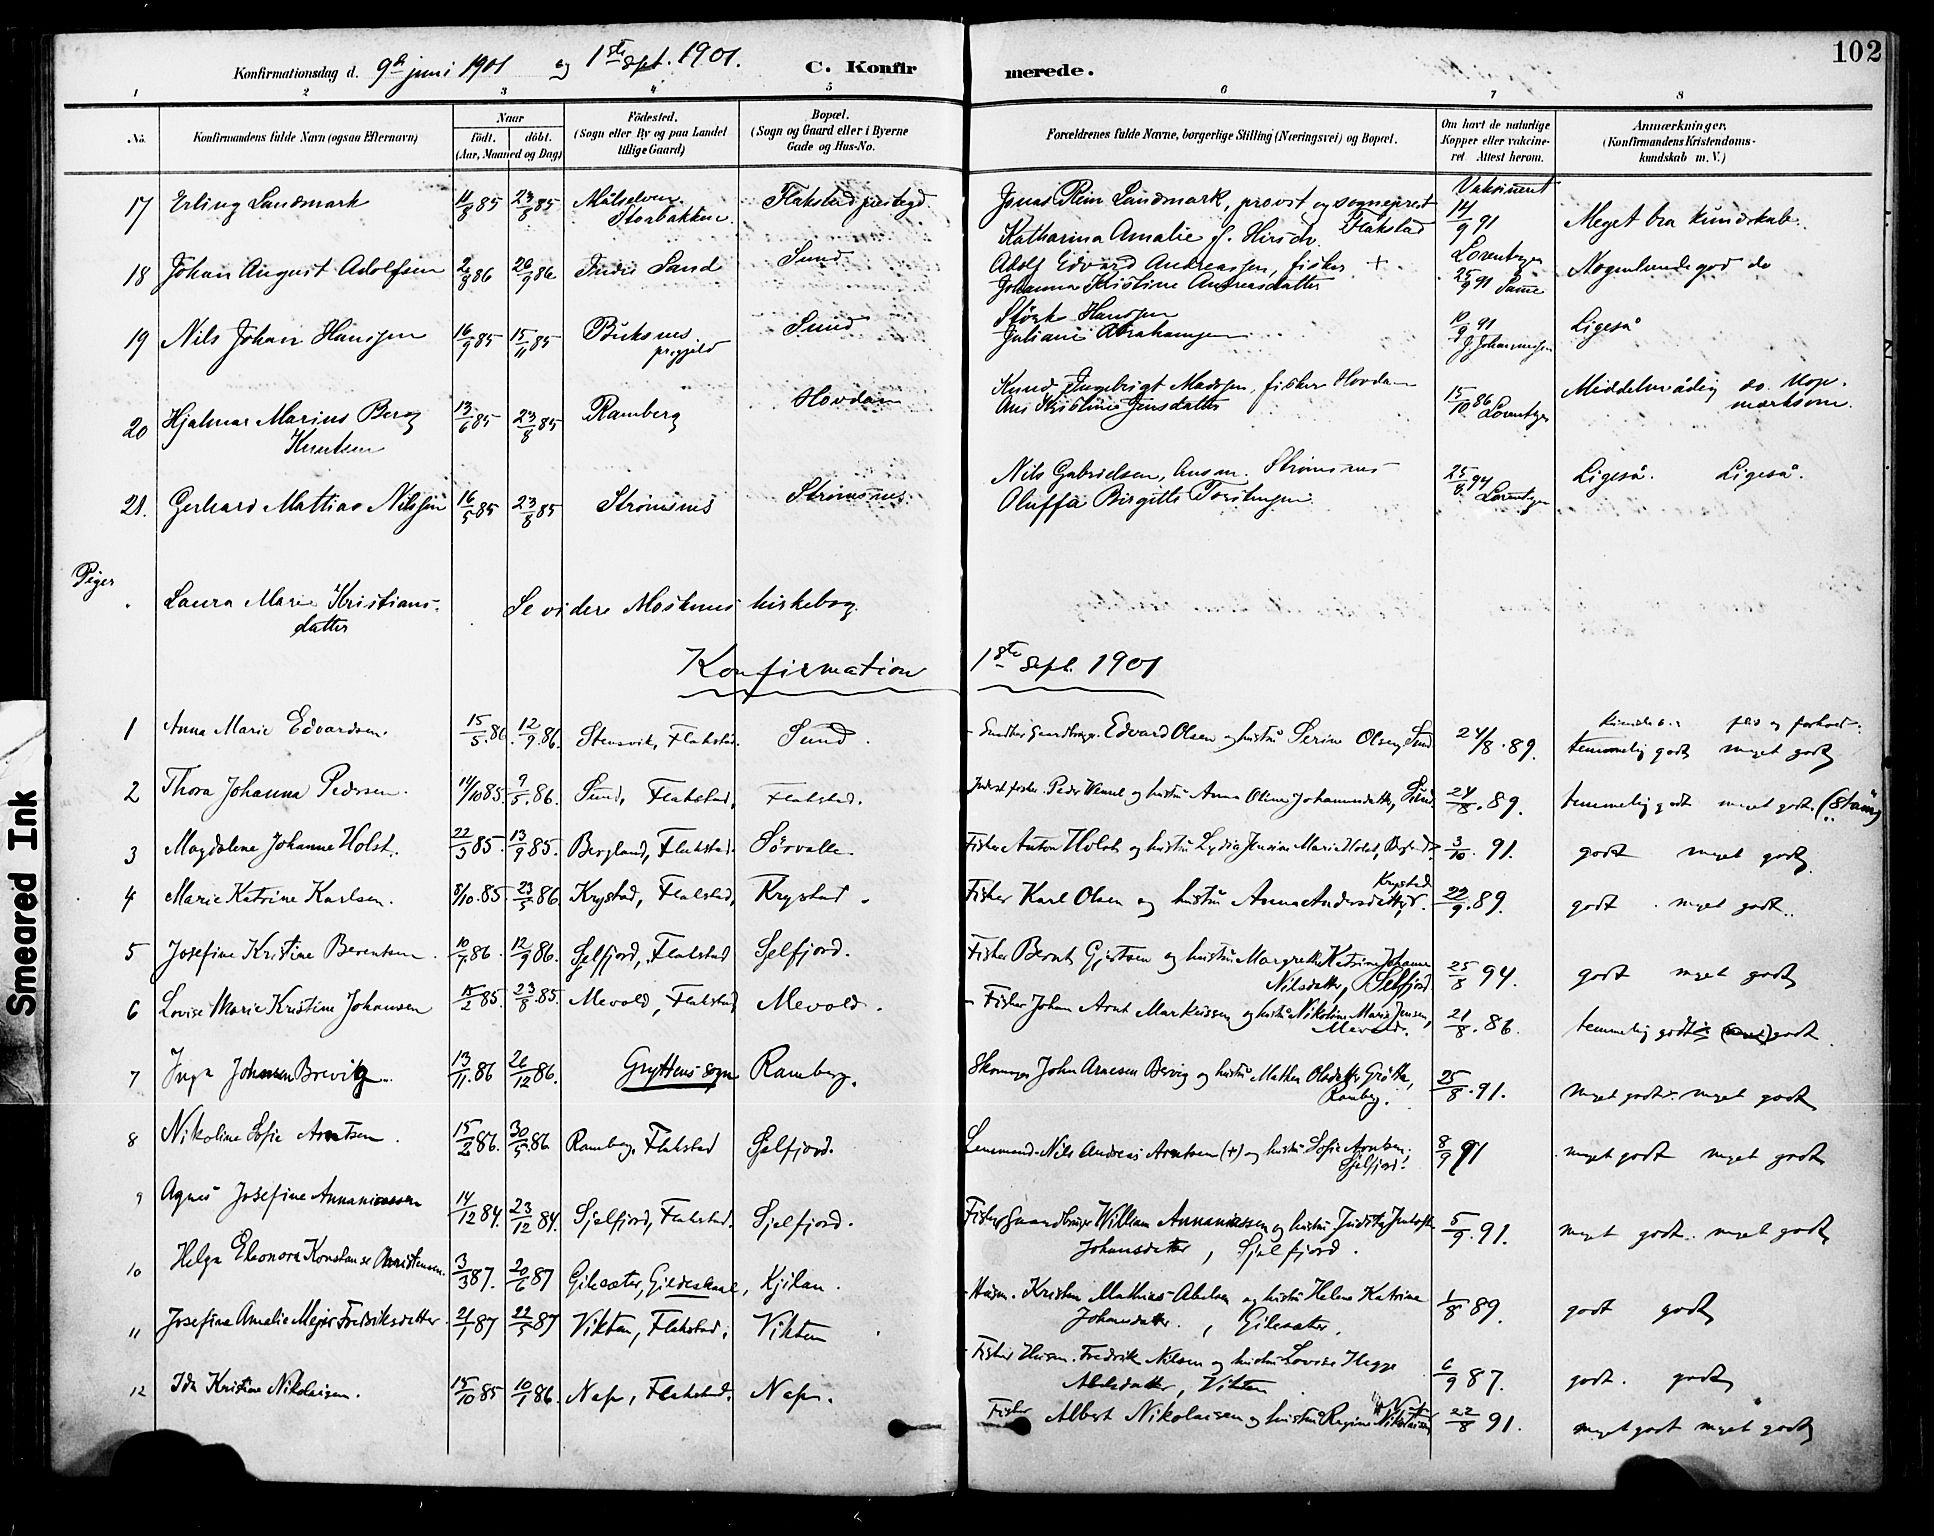 102
Konfirmationsdag d. 9de juni 1901 og 1ste sept. 1901. C. Konfirmerede.
1 2 3 4 5 6 7 8
No. Konfirmandens fulde Navn (ogsaa Efternavn) Naar født. døbt. (Aar, Maaned og Dag) Fødested. (Sogn eller By og paa Landet tillige Gaard) Bopæl. (Sogn og Gaard eller i Byerne Gade og Hus-No. Forældrenes fulde Navne, borgerlige Stilling (Næringsvei) og Bopæl. Om havt de naturlige Kopper eller vakcineret. Attest herom. Anmærkninger. (Konfirmandens Kristendomskundskab m. V.)
17 Erling Landmark 11/8 85 23/8 85 Målselven Storbakken Flakstad prestegd Jonas Rein Landmark, provst og sogneprest Flakstad Vaksinert 14/9 91 Meget bra kundskab.
Katharina Amalie f. Hirsch Lorentzen
18 Johan August Adolfsen 2/3 86 26/9 86 Indre Sand Sund Adolf Edvard Andreassen, fisker + 25/9 91 Samme Nogenlunde god do
Johanna Kristine Andreasdatter
19 Nils Johan Hansen 16/9 85 15/11 85 Buksnes prgjeld Sund Hansen 10/9 91 Ligeså
Juliane Abrahamsen J. Johannessen
20 Hjalmar Marius Berg Knutsen 13/6 85 23/8 85 Ramberg Hovdan Knud Ingebrigt Madsen, fisker Hovdan 15/10 86 Lorentzen Middelmådig do. Uopmærksom.
Ane Kristine Jensdatter
21. Gerhard Mattias Nilssen 16/5 85 23/8 85 Strømsnes Strømsnes Nils Gabrielsen, Strømsnes 25/8 94 Lorentzen Ligeså. Ligeså.
Oluffa Birgitte Torstensen
Piger
Laura Marie Kristiansdatter Se videre Moskenes kirkebog
Konfirmation 1ste sept. 1901
1 Anna Marie Edvardsen. 15/5.86. 12/9.86. Stensvik, Flakstad. Sund. Gaardbruger Edvard Olsen og hustru Serine Olsen, Sund 24/8.89. temmelig godt meget godt
2 Thora Johanna Pedersen. 14/10 85. 9/5.86. Sund, Flakstad. Flakstad. Peder og hustru Anna Oline Johannesdatter, Sund 24/8.89. temmelig godt meget godt.
3 Magdalene Johanne Holst. 22/3 85. 13/9 85. Bergland, Flakstad. Sørvalle. Fisker Anton Holst og hustru Lydia Jensine Marie Holst, 3/10.91. godt meget godt
4 Marie Katrine Karlsen. 8/10.85. 23/5 86 Krystad, Flakstad, Krystad. Fisker Karl Olsen og hustru Anna Andersdatter, Krystad 22/9.89. godt. meget godt.
5 Josefine Kristine Berentsen. 10/7.86. 12/9 86. Sjelfjord, Flakstad Sjelfjord. Fisker Bernt Gjertsen og hustru Margrethe Katrine Johanna Nilsdatter, Selfjord. 25/8 94. godt meget godt
6 Lovise Marie Kristine Johansen 15/2 85. 23/8.85. Mevold, Flakstad Mevold. Fisker Johan Arnt Markussen og hustru Nikoline Marie Jensen, Mevold. 21/8.86. temmelig godt godt
7 Inga Johnsen Brevig. 13/11.86 26/12 86. Gryttens sogn Ramberg. Skomager John Arnesen Bervig og hustru Mathea Olsdatter Grøtta, Ramberg. 25/8.91. meget godt. meget godt
8 Nikoline Sofie Arntsen. 15/2 86. 30/5.86 Ramberg, Flakstad Sjelfjord. Lensmand Nils Andreas Arntsen (+) og hustru Sofie Arntsen, Sjelfjord. 8/9 91 meget godt meget godt
9 Agnes Josefine Annaniassen 14/12 84. 23/12 84. Sjelfjord, Flakstad. Sjelfjord. Fisker Gaardbruger William Annaniassen og hustru Johansdatter, Sjelfjord. 5/9.91. meget godt. meget godt
10 Helga Eleonora Konstanse Christensen. 3/3 87. 20/6 87 Gilesæter, Gildeskaal, Kjilan. Husm. Kristen Mathias Abelsen og hustru Helene Katrine Johansdatter, Gilesæter. 1/8 89. godt godt
11 Josefine Amalie Mejer Fredriksdatter. 21/1 87 22/5 87 Vikten, Flakstad, Vikten Fisker Husm. Fredrik Nilsen og hustru Lovise Hegge Abelsdatter, Vikten 6/9 87. godt. godt
12 Ida Kristine Nikolaisen. 15/10 85 10/1 86. Nap, Flakstad. Nap. Fisker Albert Nikolaisen og hustru Regine Nikolaisen, Nap 22/8 91. meget godt meget godt
Smeared Ink